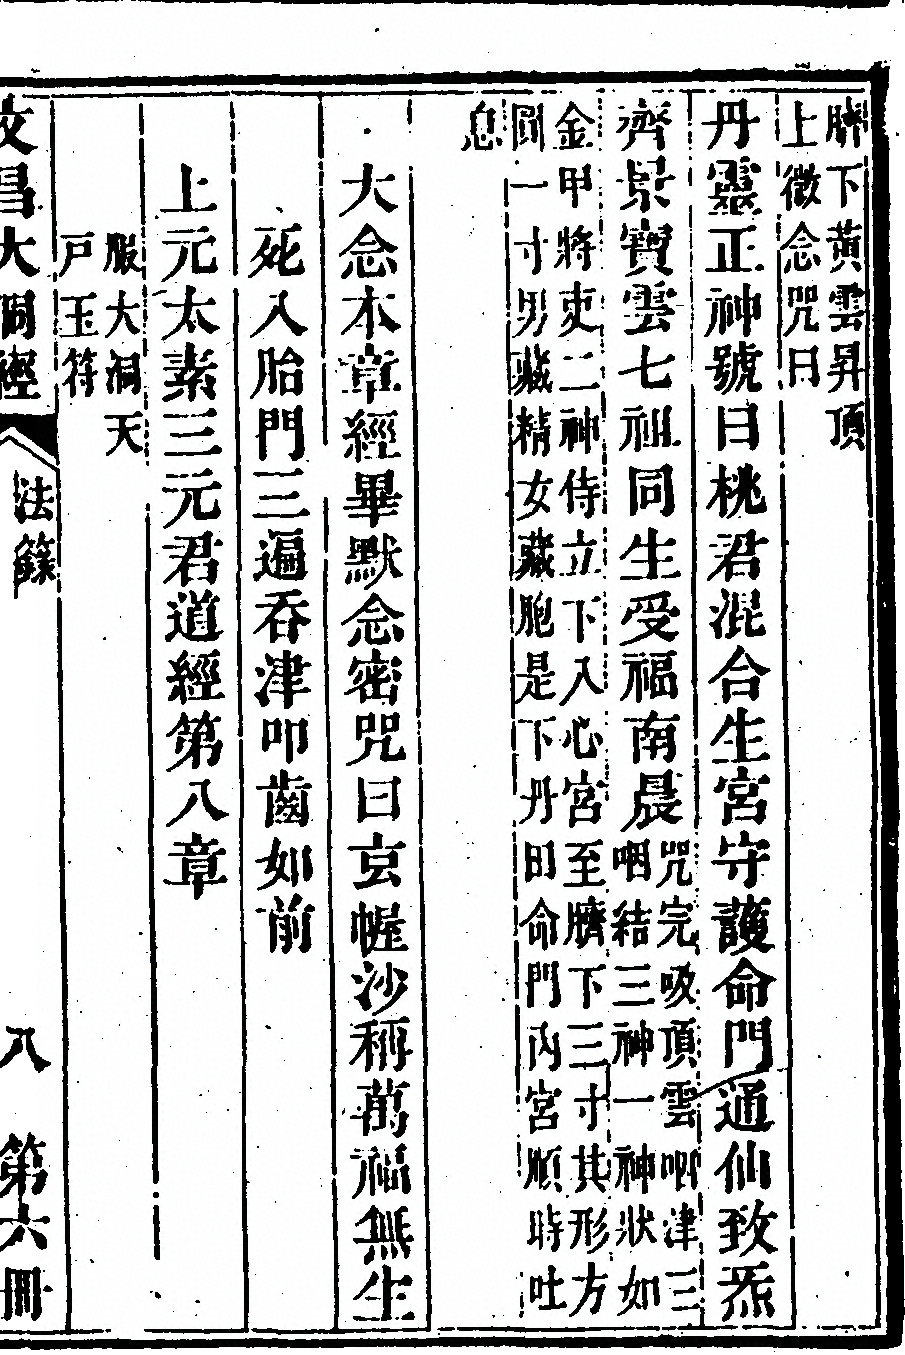 臍下黃雲昇頂
上微念咒曰
丹靈正神號曰桃君混合生宮守護命門通仙致炁
齊景寶雲七祖同生受福南晨
咒完吸頂雲咽津三
咽結三神一神狀如
金甲將吏二神侍立下入心宮至臍下三寸其形方
圓一寸男藏精女藏胞是下丹田命門內宮順時吐
息
大念本章經畢默念密咒曰玄幄沙稱萬福無生
死入胎門三遍吞津叩齒如前
上元太素三元君道經第八章
服大洞天
戸玉符
文昌大洞經 法籙 八 第六冊